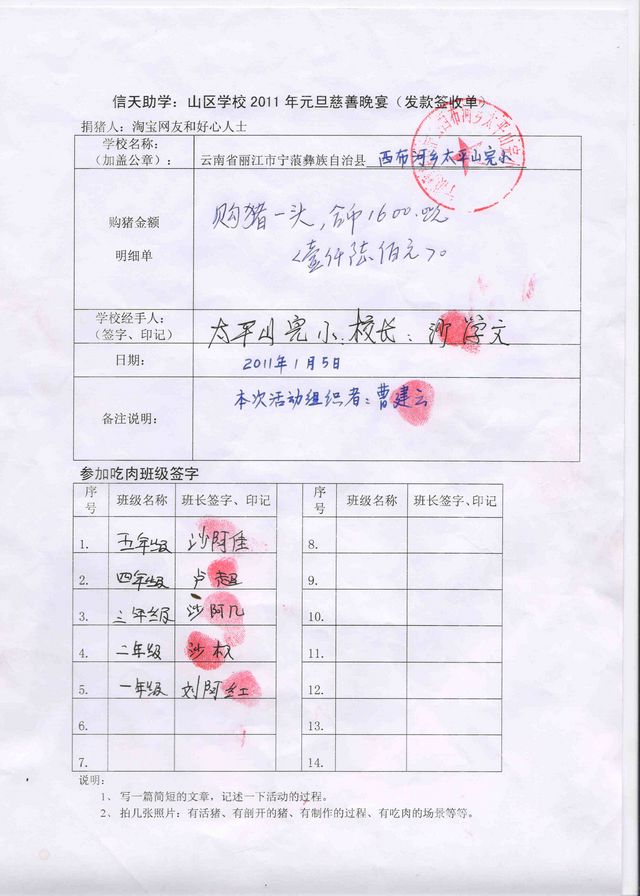 信天助学：山区学校 2011 年元旦慈善晚宴（发款签收单）
捐猪人：淘宝网友和好心人士
学校名称：
（加盖公章）：
云南省丽江市宁蒗彝族自治县 西布河乡太平山完小
购猪金额
明细单
购猪一头，合币1600.元
〈壹仟陆佰元〉。
学校经手人：
（签字、印记）
太平山完小.校长：沙学文
日期：
2011年1月5日
备注说明：
本次活动组织者：曹建云
参加吃肉班级签字
序号 班级名称 班长签字、印记 序号 班级名称 班长签字、印记
1. 五年级 沙阿佳 8.
2. 四年级 卢超 9.
3. 三年级 沙阿几 10.
4. 二年级 沙权 11.
5. 一年级 刘阿红 12.
6. 13.
7. 14.
说明：
1、 写一篇简短的文章，记述一下活动的过程。
2、 拍几张照片：有活猪、有剖开的猪、有制作的过程、有吃肉的场景等等。